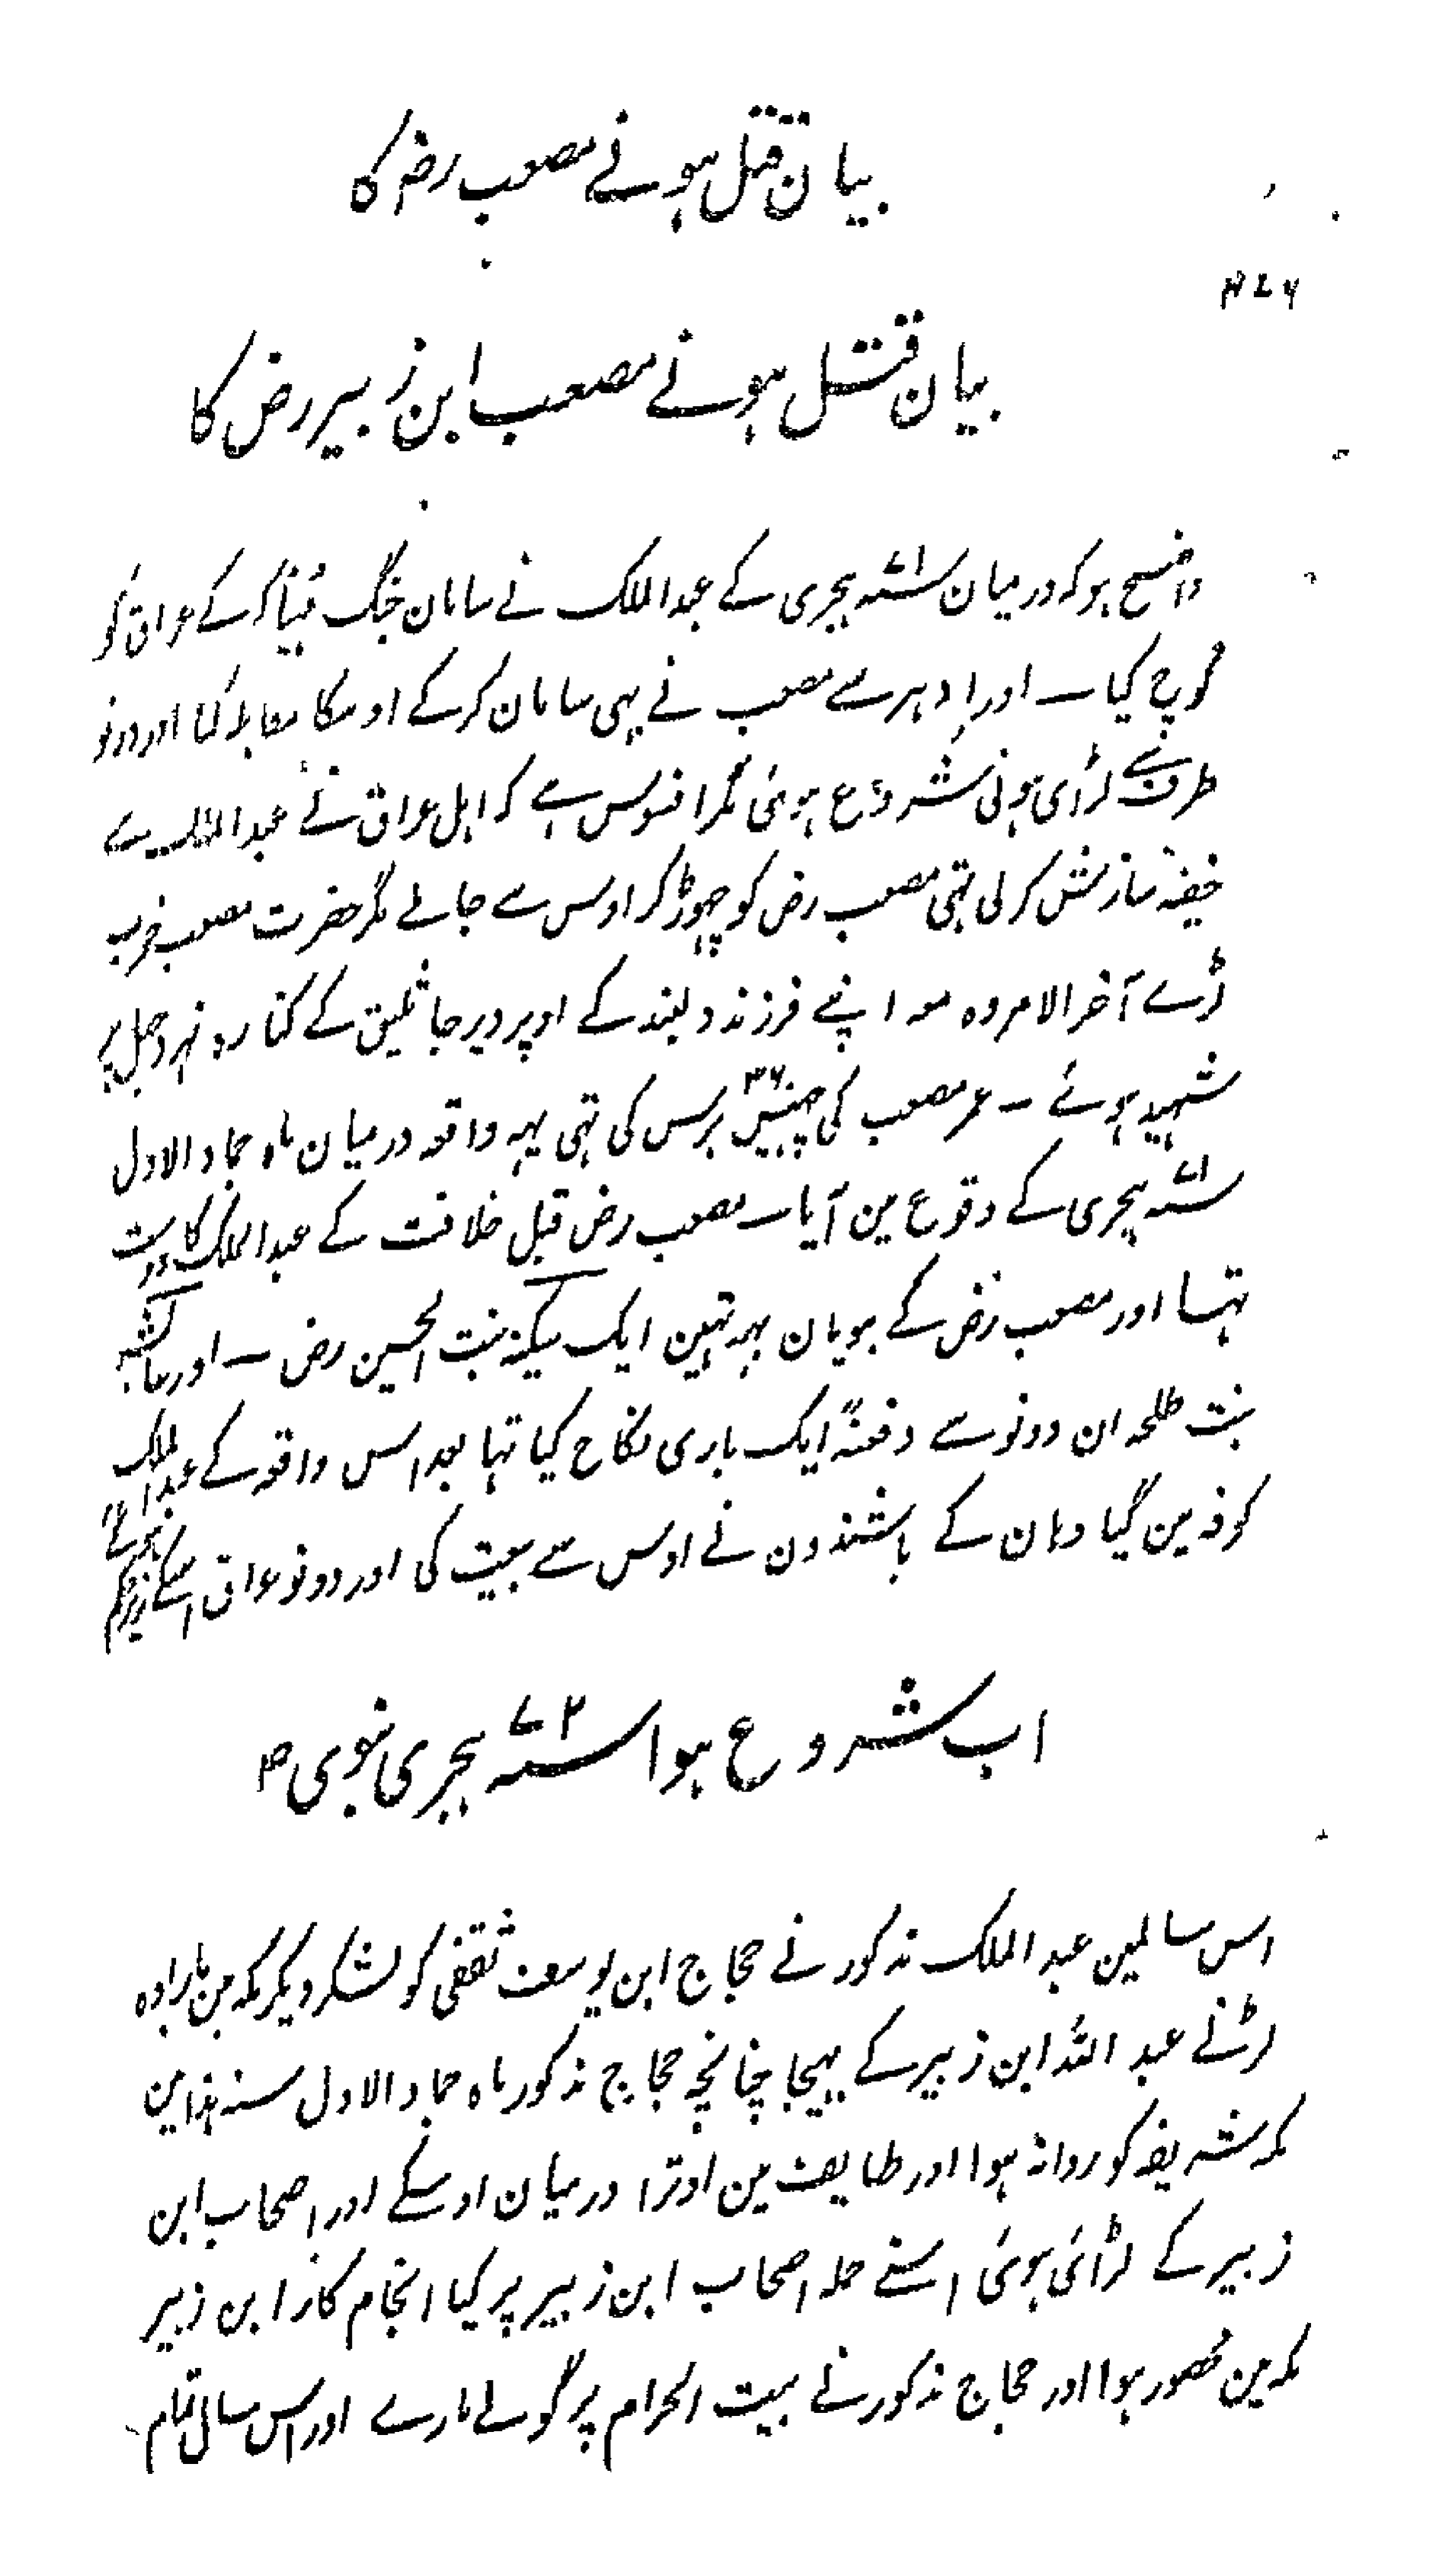 بیان قتل ہونے مصعب رضہ کا
۴۷۶
بیان قتل ہونے مصعب ابن زبیر رض کا
واضح ہو کہ درمیان ۷۱سنہ ہجری کے عبد الملک نے سامان جنگ مُہیّا کر کے عراق کو
کُوچ کیا ۔ اور اِدہر سے مصعب نے بہی سامان کر کے اوسکا مقابلہ کیا اور دونو
طرف سے لڑائی ہونی شروع ہوئی مگر افسوس ہے کہ اہل عراق نے عبد الملک سے
خفیۃ سازش کر لی تہی مصعب رض کو چہوڑ کر اوس سے جا ملے مگر حضرت مصعب خوب
لڑے آخر الامر وہ معہ اپنے فرزند دلبند کے اوپر دیر جاثلیق کے کنارہ نہر دجیل پر
شہید ہوئے ۔ عمر مصعب کی چہتیس ۳۶ برس کی تہی یہہ واقعہ درمیان ماہ جماد الاول
۷۱سنہ ہجری کے وقوع مین آیا ۔ مصعب رض قبل خلافت کے عبد الملک کا دوست
تہا اور مصعب رض کے بیویان یہہ تہین ایک سکینہ بنت الحسین رض ۔ اور عائشہ
بنت طلحہ ان دونو سے دفعۃً ایک باری نکاح کیا تہا بعد اس واقعہ کے عبد الملک
کوفہ مین گیا وہان کے باشندون نے اوس سے بیعت کی اور دونو عراق اسکے زیر حکم ہوئے
اب شروع ہوا ۷۲سنہ ہجری نبوی ص
اس سالمین عبد الملک مذکور نے حجاج ابن یوسف ثقفی کو لشکر دیکر مکہ مین بارادہ
لڑنے عبد اللہ ابن زبیر کے بہیجا چنانچہ حجاج مذکور ماہ جماد الاول سنہ ہذا مین
مکہ شریف کو روانہ ہوا اور طایف مین اوترا درمیان اوسکے اور اصحاب ابن
زبیر کے لڑائی ہوئی اسنے حملہ اصحاب ابن زبیر پر کیا انجام کار ابن زبیر
مکہ مین محصور ہوا اور حجاج مذکور نے بیت الحرام پر گولے مارے اور اس سال تمام